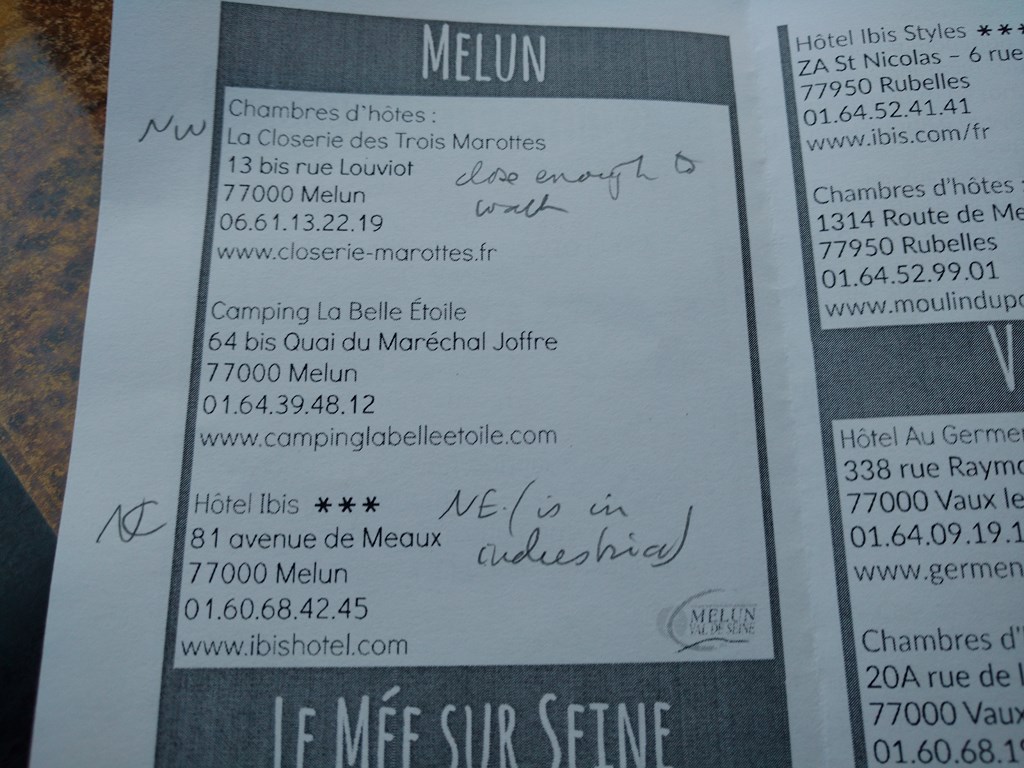 MELUN
NW
Chambres d'hôtes :
La Closerie des Trois Marottes
13 bis rue Louviot
close enough to
walk
77000 Melun
06.61.13.22.19
www.closerie-marottes.fr
Camping La Belle Étoile
64 bis Quai du Maréchal Joffre
77000 Melun
01.64.39.48.12
www.campinglabelleetoile.com
NE
Hôtel Ibis ***
NE. (is in
industrial)
81 avenue de Meaux
77000 Melun
01.60.68.42.45
www.ibishotel.com
MELUN
VAL DE SEINE
LE MÉE SUR SEINE
Hôtel Ibis Styles ***
ZA St Nicolas – 6 rue
77950 Rubelles
01.64.52.41.41
www.ibis.com/fr
Chambres d'hôtes :
1314 Route de Me
77950 Rubelles
01.64.52.99.01
www.moulindupo
V
Hôtel Au Germen
338 rue Raymo
77000 Vaux le
01.64.09.19.1
www.germen
Chambres d'
20A rue de l
77000 Vaux
01.60.68.19